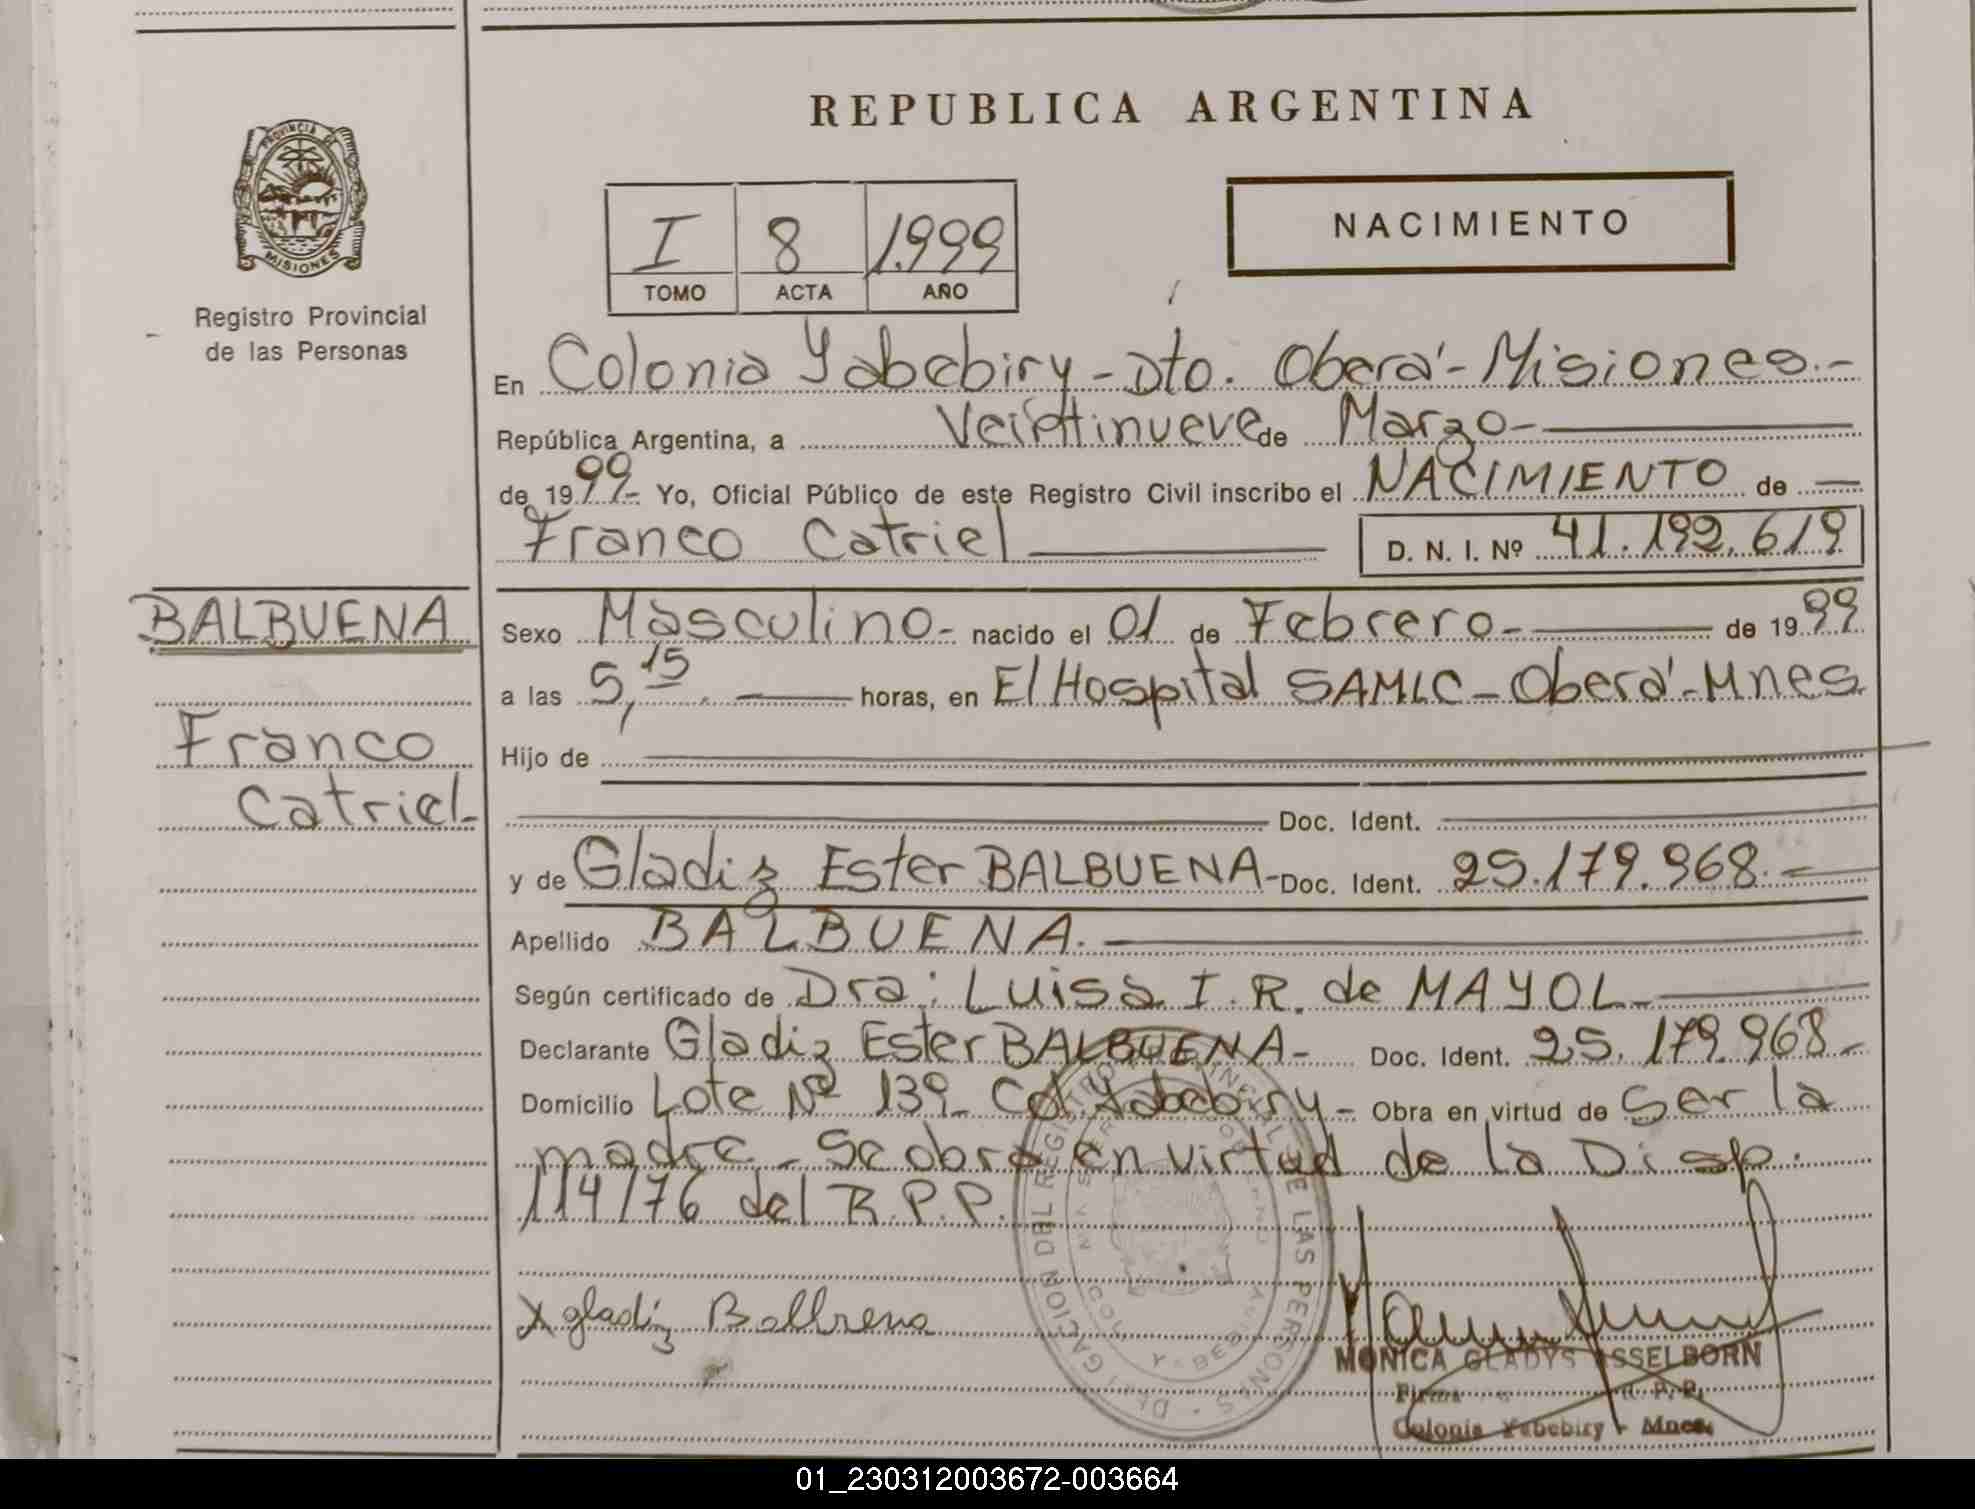 REPUBLICA ARGENTINA
PROVINCIA DE
MISIONES
Registro Provincial
de las Personas
I 8 1.999
TOMO ACTA AÑO
NACIMIENTO
En Colonia Yabebiry - Dto. Oberá - Misiones.-
República Argentina, a Veintinueve de Marzo-
de 1999- Yo, Oficial Público de este Registro Civil inscribo el NACIMIENTO de
Franco Catriel D. N. I. Nº 41.192.619
BALBUENA
Franco
Catriel-
Sexo Masculino- nacido el 01 de Febrero- de 1999
a las 5,15. horas, en El Hospital SAMIC - Oberá - Mnes.
Hijo de
Doc. Ident.
y de Gladiz Ester BALBUENA- Doc. Ident. 25.179.968.-
Apellido BALBUENA.
Según certificado de Dra: Luisa I. R. de MAYOL-
Declarante Gladiz Ester BALBUENA- Doc. Ident. 25.179.968-
Domicilio Lote Nº 139- Col. Yabebiry- Obra en virtud de Ser la
madre - Se obra en virtud de la Disp.
114/76 del R.P.P.
X gladiz Balbuena
DELEGACION DEL REGISTRO PROVINCIAL DE LAS PERSONAS
MONICA GLADYS ASSELBORN
Firma R. P. P.
Colonia Yabebiry - Mnes.
01_230312003672-003664